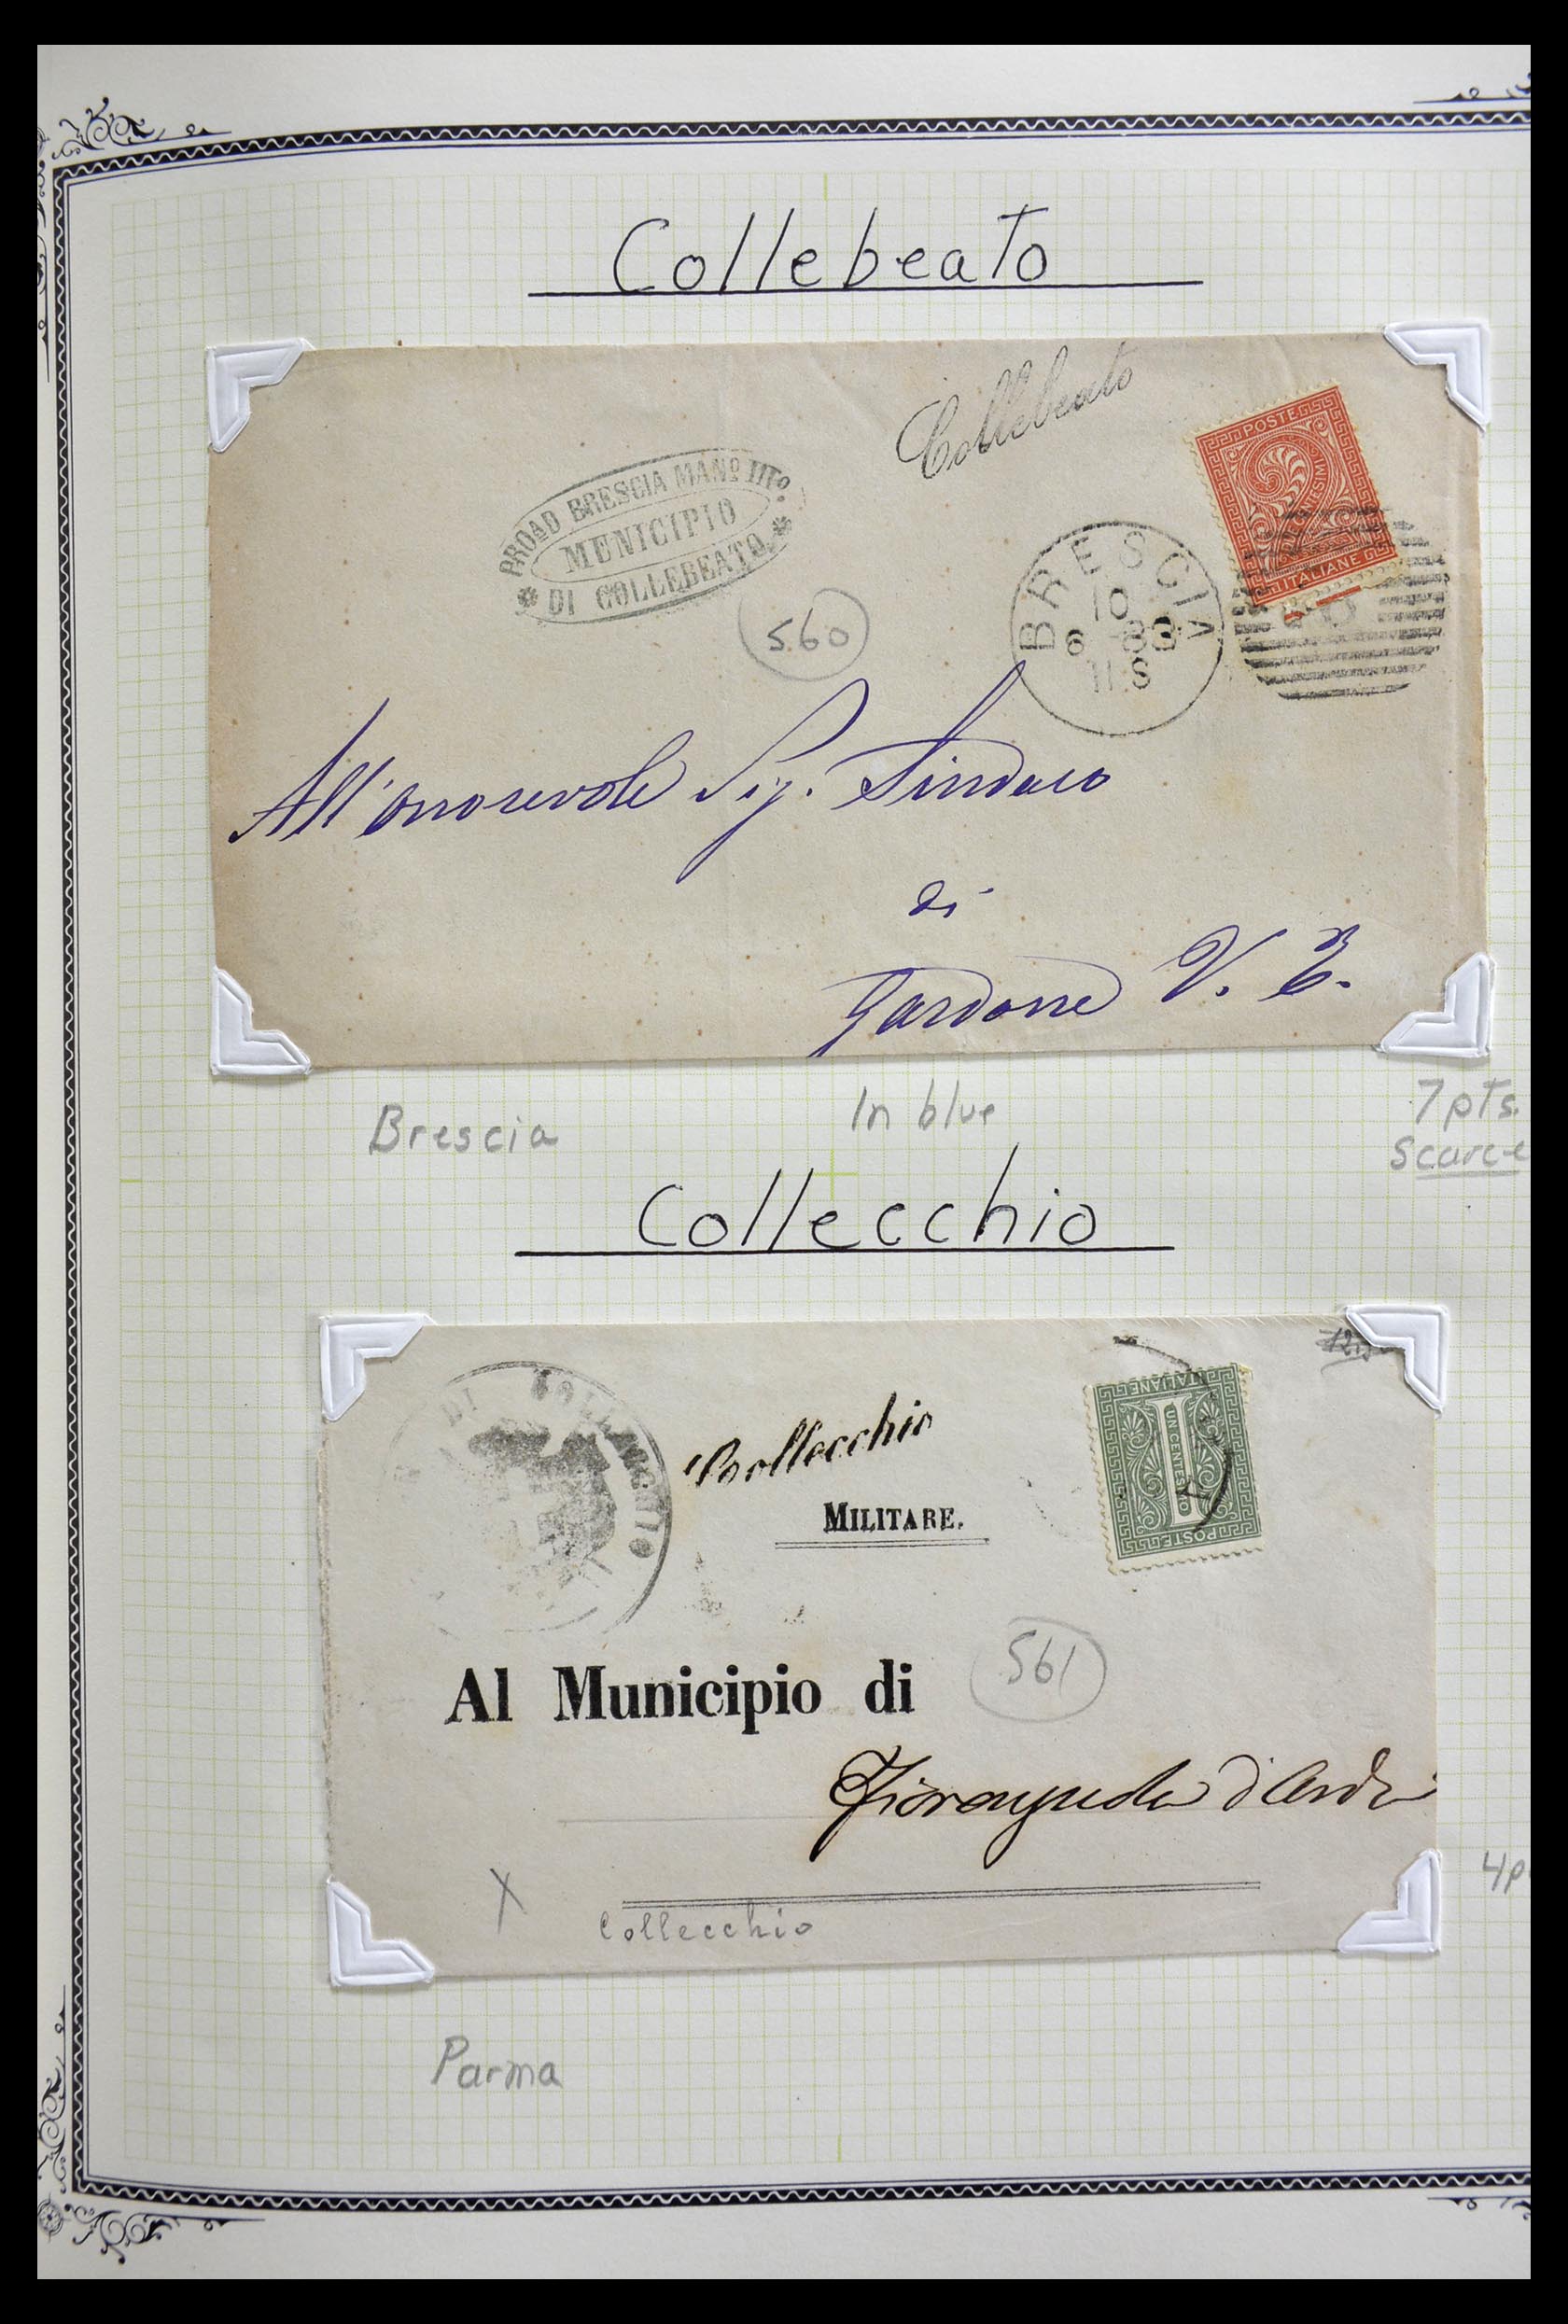 Collebeato
Collebeato
POSTE
2
CENTESIMI
ITALIANE
PROAD BRESCIA MANº IIIº
MUNICIPIO
DI COLLEBEATO
560
BRESCIA
10
6 -83
11 S
All'onorevole Sig. Sindaco
di
Gardone V. T.
Brescia
In blue
7 pts.
Scarce
Collecchio
DI COLLECCHIO
Collecchio
MILITARE.
ITALIANE
UN CENTESIMO
1
POSTE
Al Municipio di
561
Fiorenzuola d'Arda
X
Collecchio
4 p
Parma